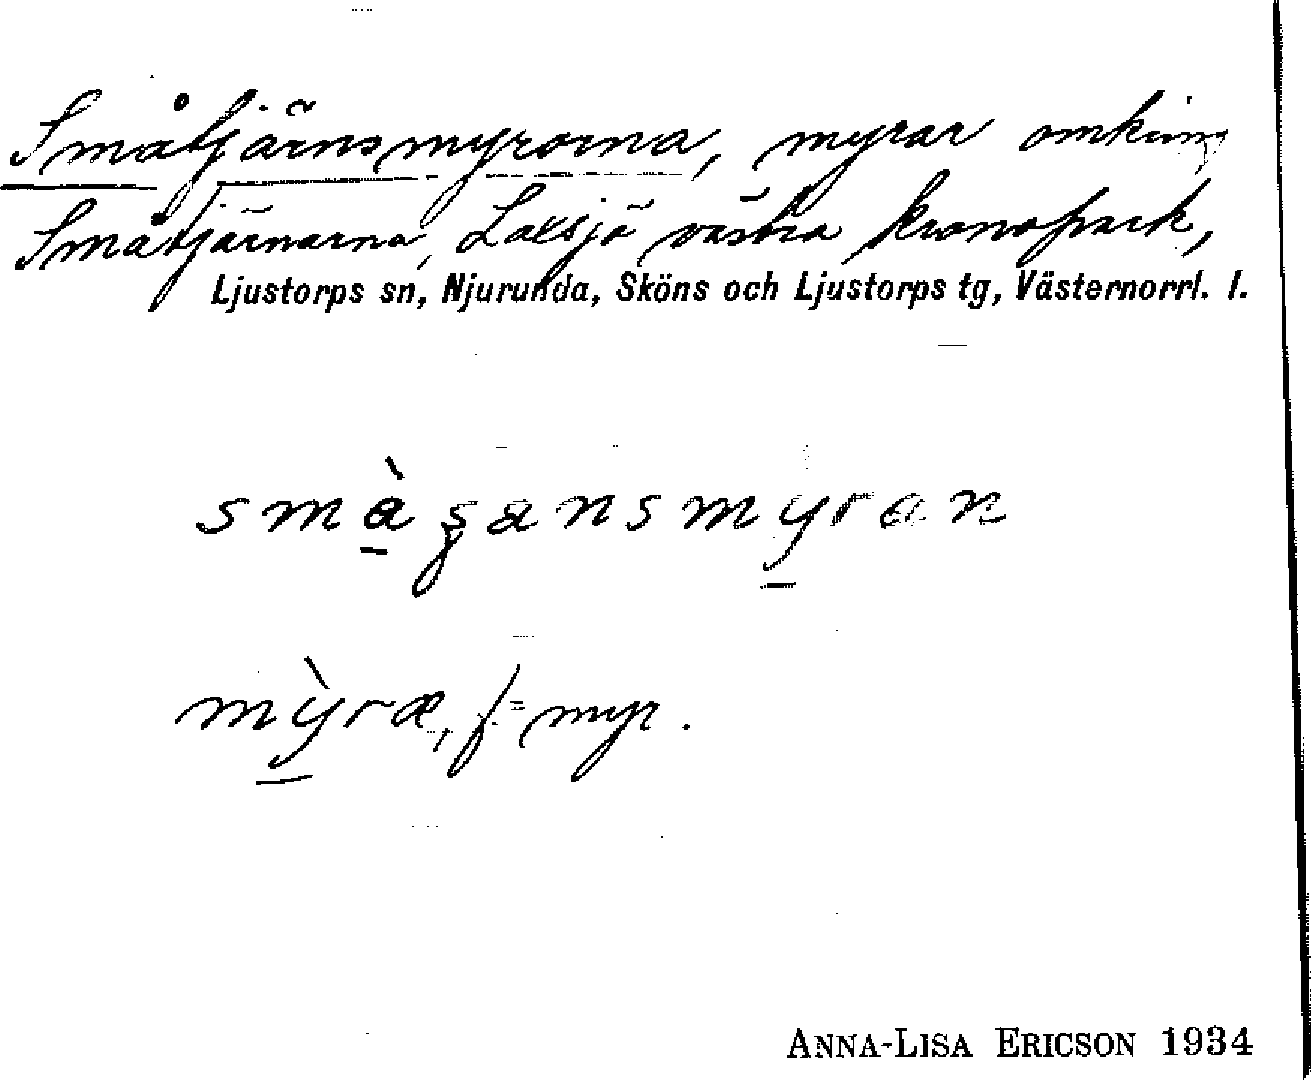 Småtjärnsmyrorna, myrar omkring
Småtjärnarna, Laxsjö västra kronopark,
Ljustorps sn, Njurunda, Sköns och Ljustorps tg, Västernorrl. l.
smàʂansmyran
mỳræ, f = myr.
ANNA-LISA ERICSON 1934